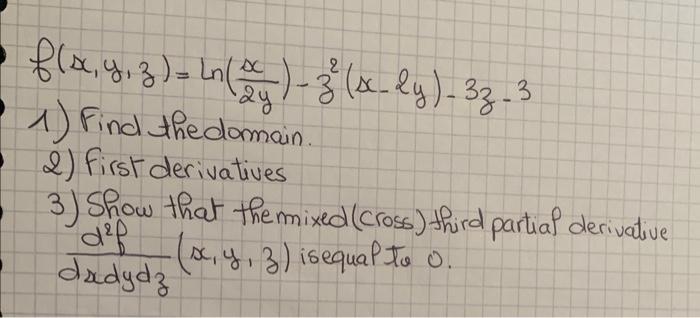 f(x,y,z) = ln(x/2y) - z²(x-2y) - 3z - 3
1) Find the domain.
2) first derivatives
3) Show that the mixed (cross) third partial derivative
d²f/dxdydz (x,y,z) is equal to 0.